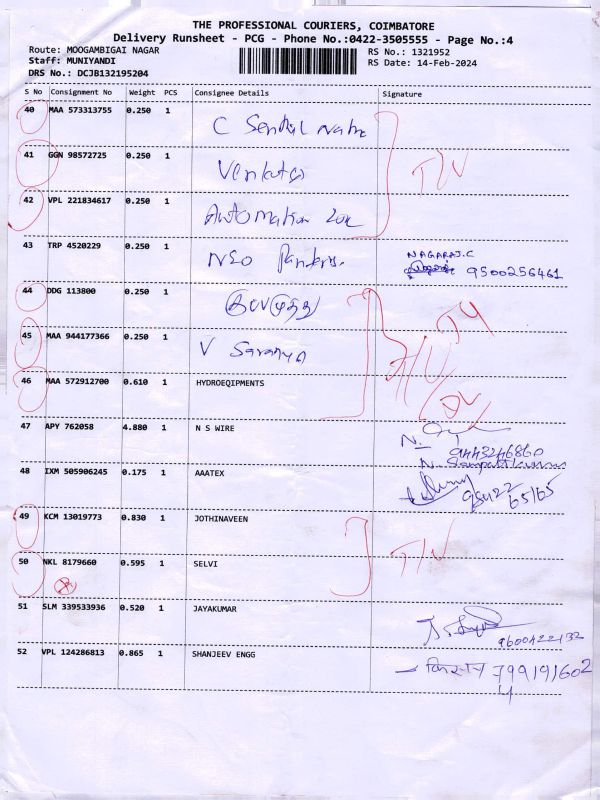 THE PROFESSIONAL COURIERS, COIMBATORE
Delivery Runsheet - PCG - Phone No.:0422-3505555 - Page No.:4
Route: MOOGAMBIGAI NAGAR RS No.: 1321952
Staff: MUNIYANDI RS Date: 14-Feb-2024
DRS No.: DCJB132195204
S No Consignment No Weight PCS Consignee Details Signature
40 MAA 573313755 0.250 1 C Senthil Nathan
41 GGN 98572725 0.250 1 Venkatesa
42 VPL 221834617 0.250 1 Automation
43 TRP 4520229 0.250 1 NSO NAGARAJ.C
9500256461
44 DDG 113800 0.250 1
45 MAA 944177366 0.250 1 V Saranya
46 MAA 572912700 0.610 1 HYDROEQIPMENTS
47 APY 762058 4.880 1 N S WIRE
9443246860
48 IXM 505906245 0.175 1 AAATEX
98422
65165
49 KCM 13019773 0.830 1 JOTHINAVEEN
50 NKL 8179660 0.595 1 SELVI
51 SLM 339533936 0.520 1 JAYAKUMAR
9600422132
52 VPL 124286813 0.865 1 SHANJEEV ENGG
799191602
4